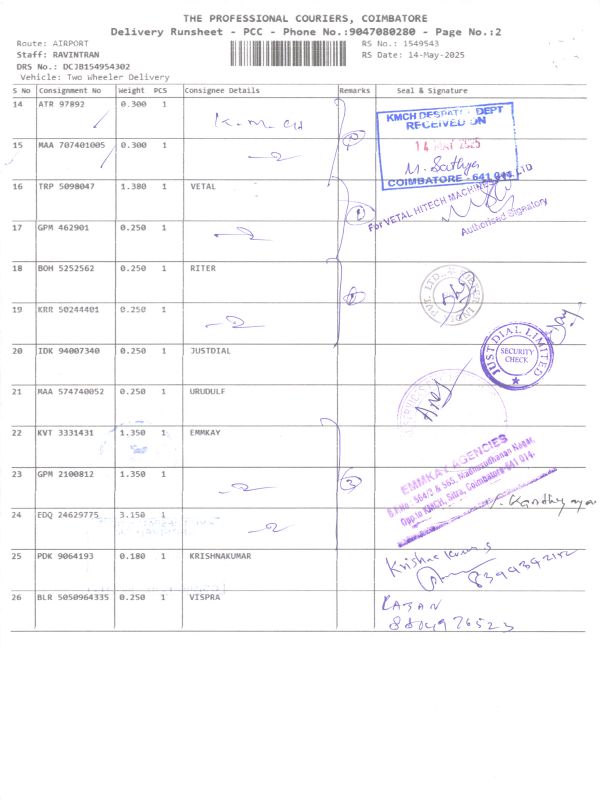 THE PROFESSIONAL COURIERS, COIMBATORE
Delivery Runsheet - PCC - Phone No.:9047080280 - Page No.:2
Route: AIRPORT RS No.: 1549543
Staff: RAVINTRAN RS Date: 14-May-2025
DRS No.: DCJB154954302
Vehicle: Two Wheeler Delivery
S No Consignment No Weight PCS Consignee Details Remarks Seal & Signature
14 ATR 97892 0.300 1 K.M.CH
KMCH DESPATCH DEPT
RECEIVED ON
14 MAY 2025
M. Sathya
COIMBATORE - 641 014
15 MAA 707401005 0.300 1
16 TRP 5098047 1.380 1 VETAL
For VETAL HITECH MACHINES LTD
Authorised Signatory
17 GPM 462901 0.250 1
18 BOH 5252562 0.250 1 RITER
PVT. LTD.
19 KRR 50244401 0.250 1
20 IDK 94007340 0.250 1 JUSTDIAL
JUST DIAL LIMITED
SECURITY
CHECK
21 MAA 574740052 0.250 1 URUDULF
22 KVT 3331431 1.350 1 EMMKAY
EMMKAY AGENCIES
S.F.No - 564/2 & 565, Madhusudhanan Nagar,
Opp to KMCH, Sitra, Coimbatore-641 014.
23 GPM 2100812 1.350 1 3
24 EDQ 24629775 3.150 1
25 PDK 9064193 0.180 1 KRISHNAKUMAR
Krishnakumar S
26 BLR 5050964335 0.250 1 VISPRA
RAJAN
8804976523